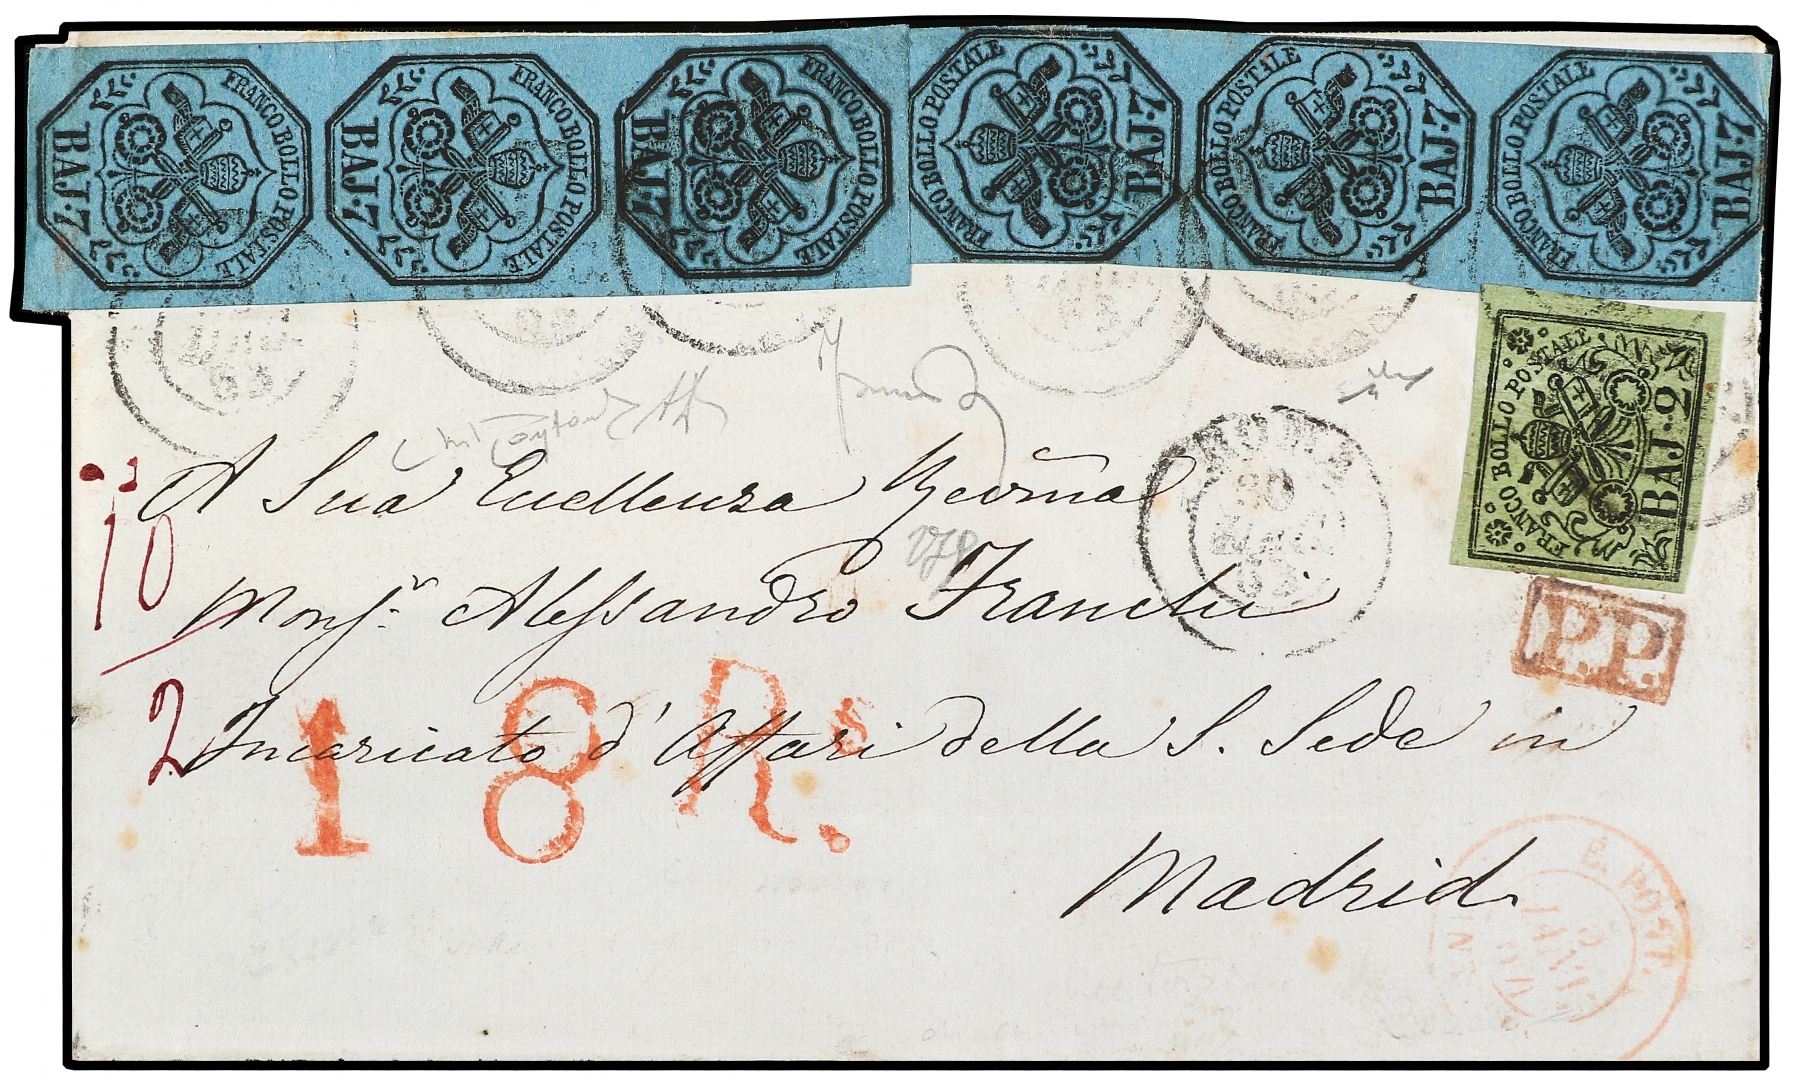 FRANCO BOLLO POSTALE
BAJ. 7
FRANCO BOLLO POSTALE
BAJ. 7
FRANCO BOLLO POSTALE
BAJ. 7
FRANCO BOLLO POSTALE
BAJ. 7
FRANCO BOLLO POSTALE
BAJ. 7
FRANCO BOLLO POSTALE
BAJ. 7
FRANCO BOLLO POSTALE
BAJ. 2
63
63
63
A Sua Eccellenza
Monsr. Alessandro Franchi
Incaricato d'Affari della S. Sede in
Madrid
P.P.
10
2
18 Rs.
278
20
63